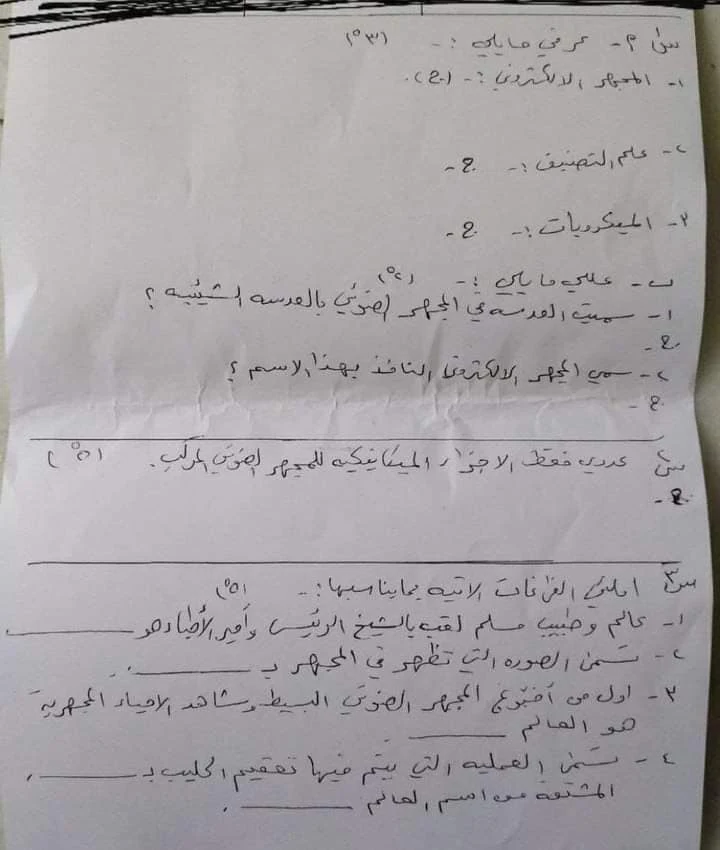 س١/ م- عرفي ما يلي :- (٣°)
١- المجهر الالكتروني :- (ج).
٢- علم التصنيف :- ج-
٣- الميكروبات :- ج-
ب- عللي ما يلي :- (٢°)
١- سميت العدسه في المجهر الضوئي بالعدسه الشيئيه ؟
ج-
٢- سمي المجهر الالكتروني النافذ بهذا الاسم ؟
ج-
س٢/ عددي فقط الاجزاء الميكانيكيه للمجهر الضوئي المركب. (٥°)
ج-
س٣/ املئي الفراغات الاتيه بما يناسبها :- (٥°)
١- عالم وطبيب مسلم لقب بالشيخ الرئيس وأمير الأطباء هو ـــــــ
٢- تسمى الصوره التي تظهر في المجهر بـ ـــــــ .
٣- اول من أخترع المجهر الضوئي البسيط وشاهد الاحياء المجهرية
هو العالم ـــــــ .
٤- تسمى العمليه التي يتم فيها تعقيم الحليب بـ ـــــــ ،
المشتقة من اسم العالم ـــــــ .